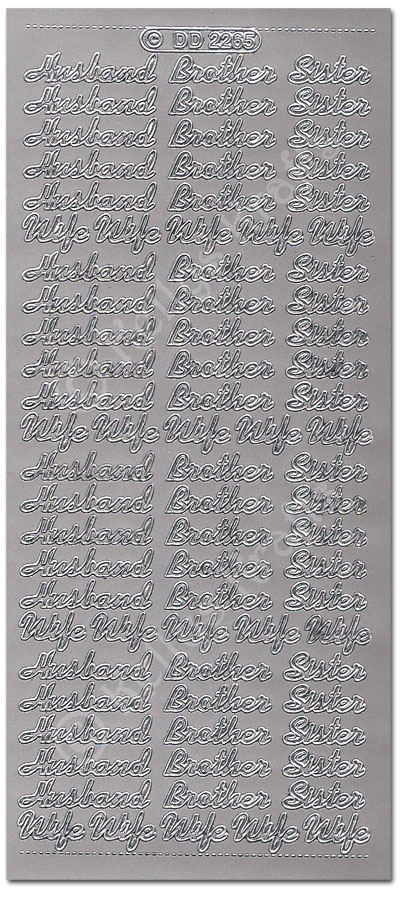 © DD 2265
Husband Brother Sister
Husband Brother Sister
Husband Brother Sister
Husband Brother Sister
Husband Brother Sister
Wife Wife Wife Wife Wife
Husband Brother Sister
Husband Brother Sister
Husband Brother Sister
Husband Brother Sister
Husband Brother Sister
Wife Wife Wife Wife Wife
Husband Brother Sister
Husband Brother Sister
Husband Brother Sister
Husband Brother Sister
Husband Brother Sister
Wife Wife Wife Wife Wife
Husband Brother Sister
Husband Brother Sister
Husband Brother Sister
Husband Brother Sister
Husband Brother Sister
Wife Wife Wife Wife Wife